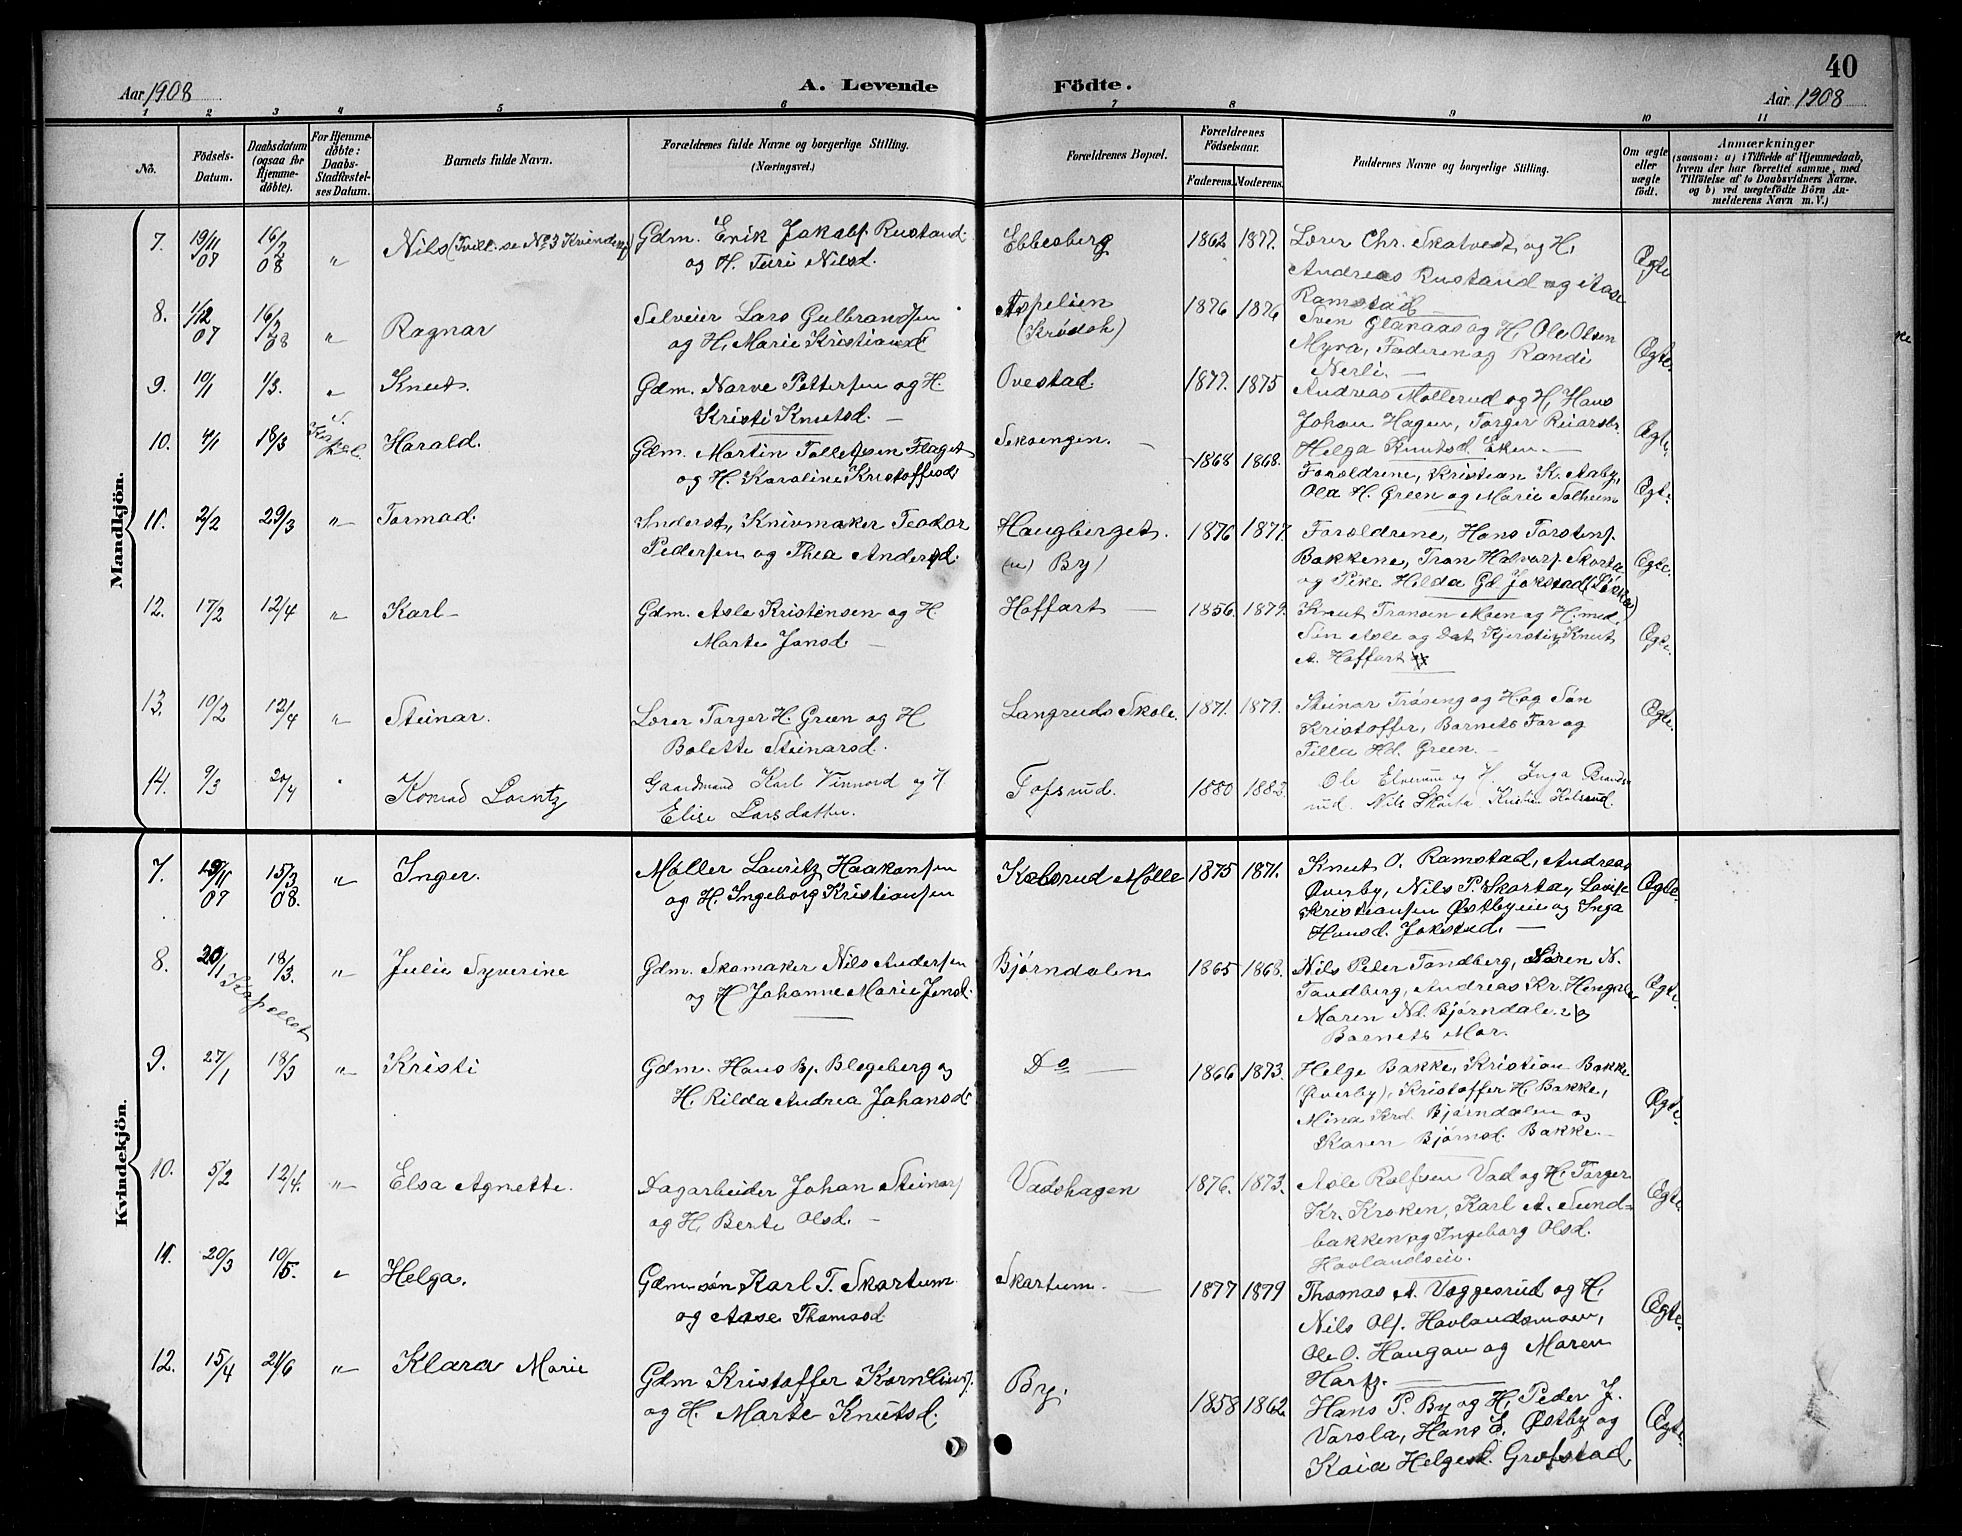 40
Aar 1908
A. Levende
Födte.
Aar 1908
1 2 3 4 5 6 7 8 9 10 11
No.
Födsels-
Datum.
Daabsdatum
(ogsaa for
Hjemme-
døbte).
For Hjemme-
døbte:
Daabs-
Stadfæstel-
ses Datum.
Barnets fulde Navn.
Forældrenes fulde Navne og borgerlige Stilling.
(Næringsvei.)
Forældrenes Bopæl.
Forældrenes
Födselsaar.
Faderens. Moderens.
Faddernes Navne og borgerlige Stilling.
Om ægte
eller
uægte
født.
Anmærkninger
(saasom: a) i Tilfælde af Hjemmedaab,
hvem der har forrettet samme, med
Tilföielse af to Daabsvidners Navne.
og b) ved uægtefödte Börn An-
melderens Navn m. V.)
Mandkjön.
7. 19/11 07 16/2 08 " Nils (Tvill. se No 3 Kvindekj) Gdm. Erik Jakobs. Rustand
og H. Turi Nilsd. Ebbesberg 1862 1877. Lærer Chr. Skatvedt og H,
Andreas Rustand og Aase
Ramstad Ægte
8. 1/12 07 16/2 08 " Ragnar Selveier Lars Gulbrandsen
og H, Marie Kristiansd Aspelien
(Krødsh) 1876 1876 Sven Glanaas og H, Ole Olsen
Myra, Faderen og Randi
Nerli — Ægte.
9. 10/1 1/3. " Knut. Gdm. Narve Pettersen og H.
Kristi Knutsd. — Ovestad. 1877. 1875 Andreas Møllerud og H, Hans
Johan Hagen, Torger Reiarsb.
Helga Knutsd. Eken. — Ægte
10. 4/1 18/3 Harald. Gdm. Martin Tollefsen Flaget
og H. Karoline Kristoffersd Skoengen. — 1868 1868. Forældrene, Kristian K. Aaby,
Ola H. Green og Marie Solheim Ægte.
11. 2/2 29/3 " Tormod. Inderst, Knivmaker Teodor
Pedersen og Thea Andersd. Haugberget.
(u) By) 1876 1877. Forældrene, Hans Torstens.
Bakkene, Tron Halvors. Skorta
og Pike Hilda Gd Jokstad Ægte.
12. 17/2 12/4 " Karl — Gdm. Asle Kristensen og H.
Marte Jonsd. — Hoffart — 1856. 1879. Knut Tronsen Moen og H, med
Søn Asle og Dat Kjersti, Knut
A. Hoffart Ægte.
13. 10/2 12/4 " Steinar. Lærer Torger H. Green og H
Bolette Steinarsd. Langruds Skole. 1871. 1879. Steinar Trøseng og H og Søn
Kristoffer, Barnets Far og
Tilla Hd. Green. — Ægte.
14. 9/3 20/4 " Konrad Lorntz Gaardmand Karl Vinnord og H
Elise Larsdatter. Tofsrud. 1880 1883. Ole Elverum og H. Inga Brands-
rud. Nils Skorta Kristian Kolsrud.
Kvindekjön.
7. 19/11 07 15/3 08. " Inger. Møller Lauritz Haakonsen
og H. Ingeborg Kristiansen Kolsrud Mølle 1875 1871. Knut O. Ramstad, Andreas
Øverby, Nils P. Skorta, Lovise
Kristiansen Østbyeie og Inga
Hansd. Jokstad. — Ægte.
8. 20/1 Kapellet 18/3. " Julie Syverine Gdm. Skomaker Nils Andersen
og H Johanne Marie Jensd. Bjørndalen 1865 1868. Nils Peter Tandberg, Søren N.
Tandberg, Andreas Kr. Hengsle
Maren Nd. Bjørndalen og
Barnets Mor. Ægte.
9. 27/1 18/3 " Kristi Gdm. Hans Bj. Blegeberg og
H. Rilda Andrea Johansd. Do — 1866 1873. Helge Bakke, Kristian Bakke
(Øverby), Kristoffer H. Bakke,
Mina Krd. Bjørndalen og
Karen Bjørnsd. Bakke. — Ægte.
10. 5/2 12/4. " Elsa Agnette. Dagarbeider Johan Steinars
og H, Berte Olsd. — Vadshagen 1876. 1873. Asle Rolfsen Vad og H, Torger
Kr. Kroken, Karl A. Sund-
bakken og Ingeborg Olsd.
Havlandseie. Ægte
11. 20/3 10/5. " Helga. Gdm søn Karl T. Skartum
og Aase Thomsd Skartum. — 1877 1879 Thomas A. Voggesrud og H,
Nils Ols. Havlandsmoen,
Ole O. Haugan og Maren
Hartz. Ægte.
12. 15/4 21/6 " Klara Marie Gdm Kristoffer Kornelius.
og H. Marte Knutsd. By. 1858 1862. Hans P. By og H, Peder J.
Varsla, Hans E. Østby og
Kaia Helgesd. Grøfstad. Ægte.